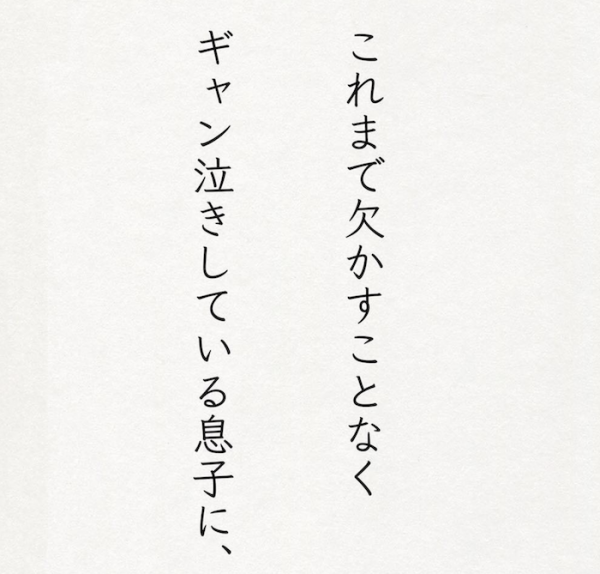 これまで欠かすことなく
ギャン泣きしている息子に、